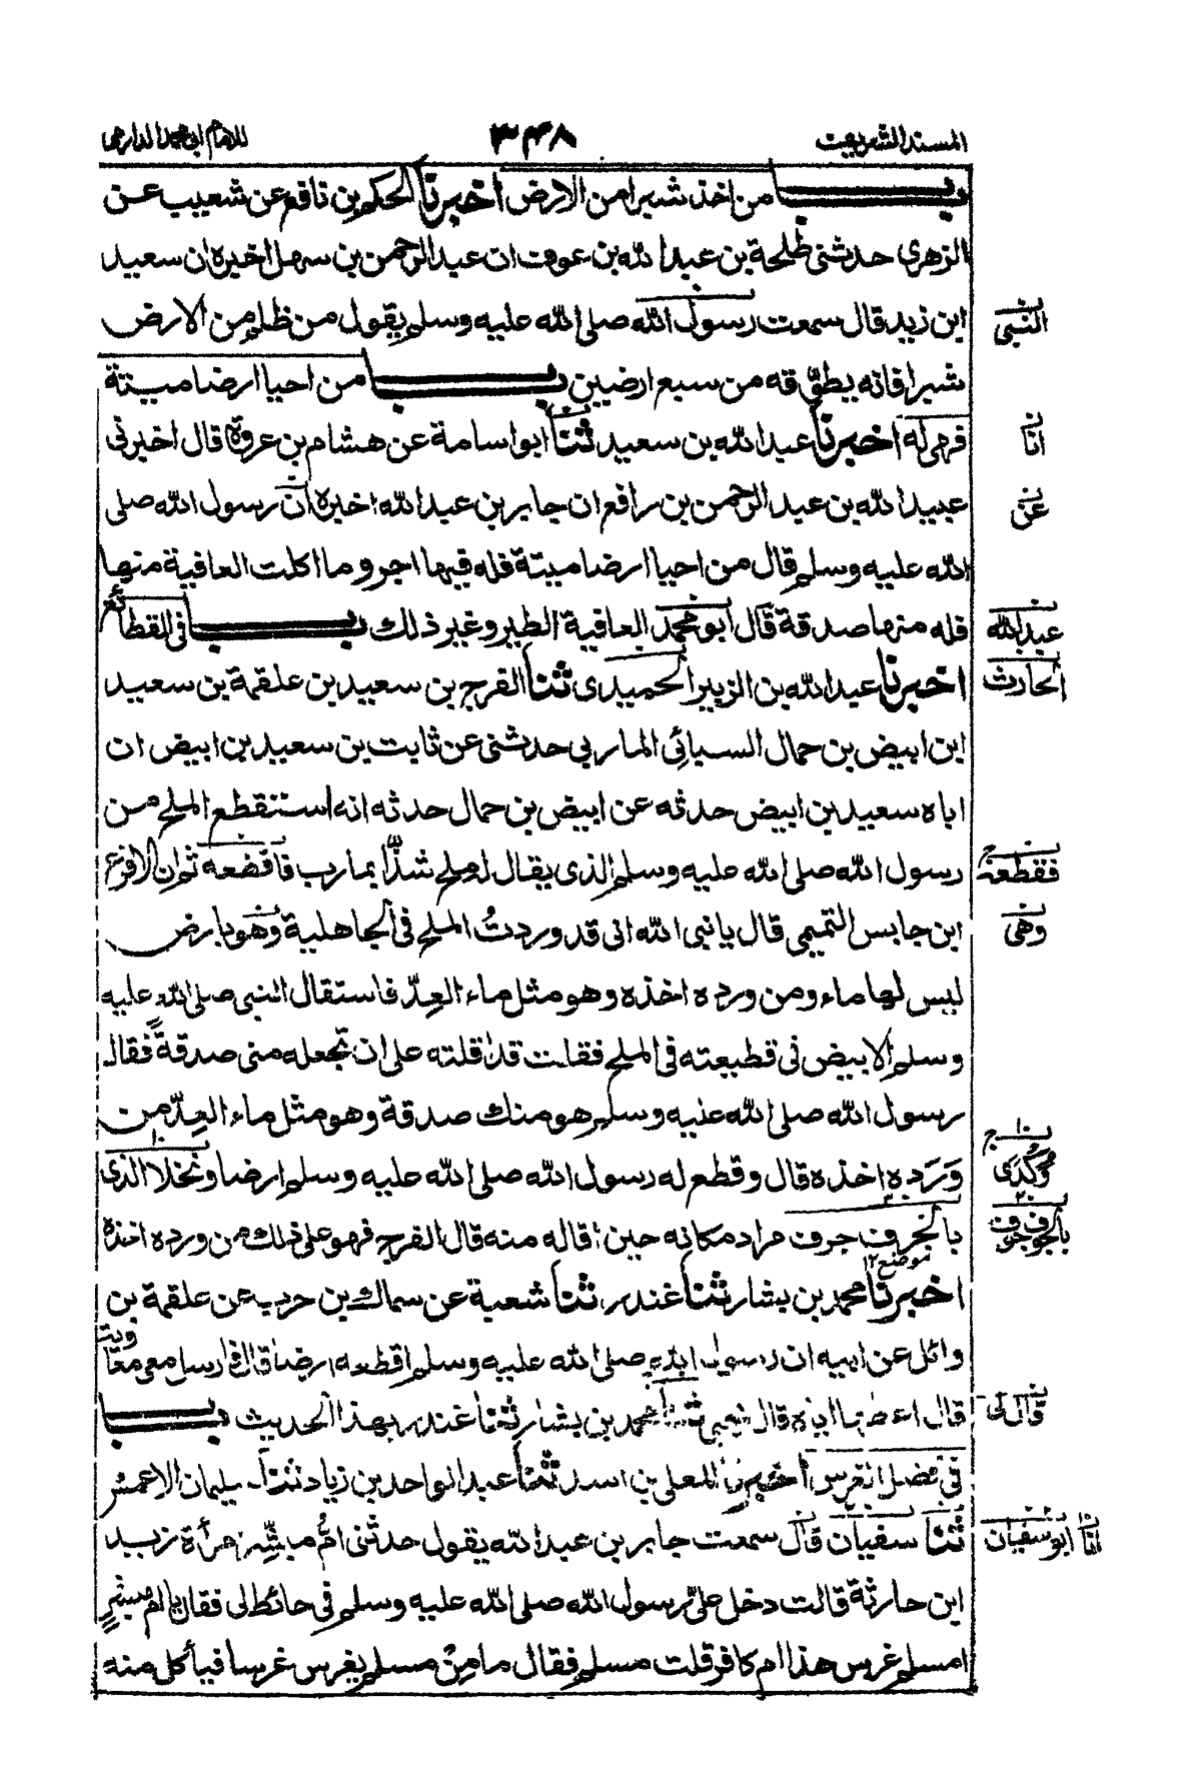 المسند الشريف
٣٤٨
للامام ابى محمد الدارمى
باب من اخذ شبرا من الارض اخبرنا الحكم بن نافع عن شعيب عن
الزهرى حدثنى طلحة بن عبد الله بن عوف ان عبد الرحمن بن سهل اخبره ان سعيد
ابن زيد قال سمعت رسول الله صلى الله عليه وسلم يقول من ظلم من الارض
النبى
شبرا فانه يطوّقه من سبع ارضين باب من احيا ارضا ميتة
فهى له اخبرنا عبد الله بن سعيد ثنا ابو اسامة عن هشام بن عروة قال اخبرنى
انا
عبيد الله بن عبد الرحمن بن رافع ان جابر بن عبد الله اخبره ان رسول الله صلى
عن
الله عليه وسلم قال من احيا ارضا ميتة فله فيها اجر وما اكلت العافية منها
فله منها صدقة قال ابو محمد العافية الطير وغير ذلك باب فى القطائع
عبد الله
اخبرنا عبد الله بن الزبير الحميدى ثنا الفرج بن سعيد بن علقمة بن سعيد
الحارث
ابن ابيض بن حمال السبائى الماربى حدثنى عن ثابت بن سعيد بن ابيض ان
اباه سعيد بن ابيض حدثه عن ابيض بن حمال حدثه انه استنقطع الملح من
رسول الله صلى الله عليه وسلم الذى يقال له ملح شذّا بمارب فاقضعه ثم ان الاقرع
فقطعه
ابن حابس التميمى قال يا نبى الله انى قد وردتُ الملح فى الجاهلية وهو بارض
وهى
ليس لها ماء ومن ورده اخذه وهو مثل ماء العِدّ فاستقال النبى صلى الله عليه
وسلم الابيض فى قطيعته فى الملح فقلت قد اقلته على ان تجعله منى صدقةً فقال
رسول الله صلى الله عليه وسلم هو منك صدقة وهو مثل ماء العِدّ من
وَرَده اخذه قال وقطع له رسول الله صلى الله عليه وسلم ارضا ونخلا الذى
بالجرف جرف مراد مكانه حين اقاله منه قال الفرج فهو على ذلك من ورده اخذه
موضع ١٢
اخبرنا محمد بن بشار ثنا غندر ثنا شعبة عن سماك بن حرب عن علقمة بن
وائل عن ابيه ان رسول الله صلى الله عليه وسلم اقطعه ارضا قال فارسل معى معاوية
قال اعطها اياه قال يحيى ثنا محمد بن بشار ثنا غندر بهذا الحديث باب
قال لى
فى فضل الغرس اخبرنا المعلى بن اسد ثنا عبد الواحد بن زياد ثنا سليمان الاعمش
ثنا سفيان قال سمعت جابر بن عبد الله يقول حدثنى امُّ مبشّر امرأة زيد
انا ابو سفيان
ابن حارثة قالت دخل علىّ رسول الله صلى الله عليه وسلم فى حائط لى فقال يا ام مبشرٍ
امسلم غرس هذا ام كافر قلت مسلم فقال ما مِنْ مسلم يغرس غرسا فيأكل منه